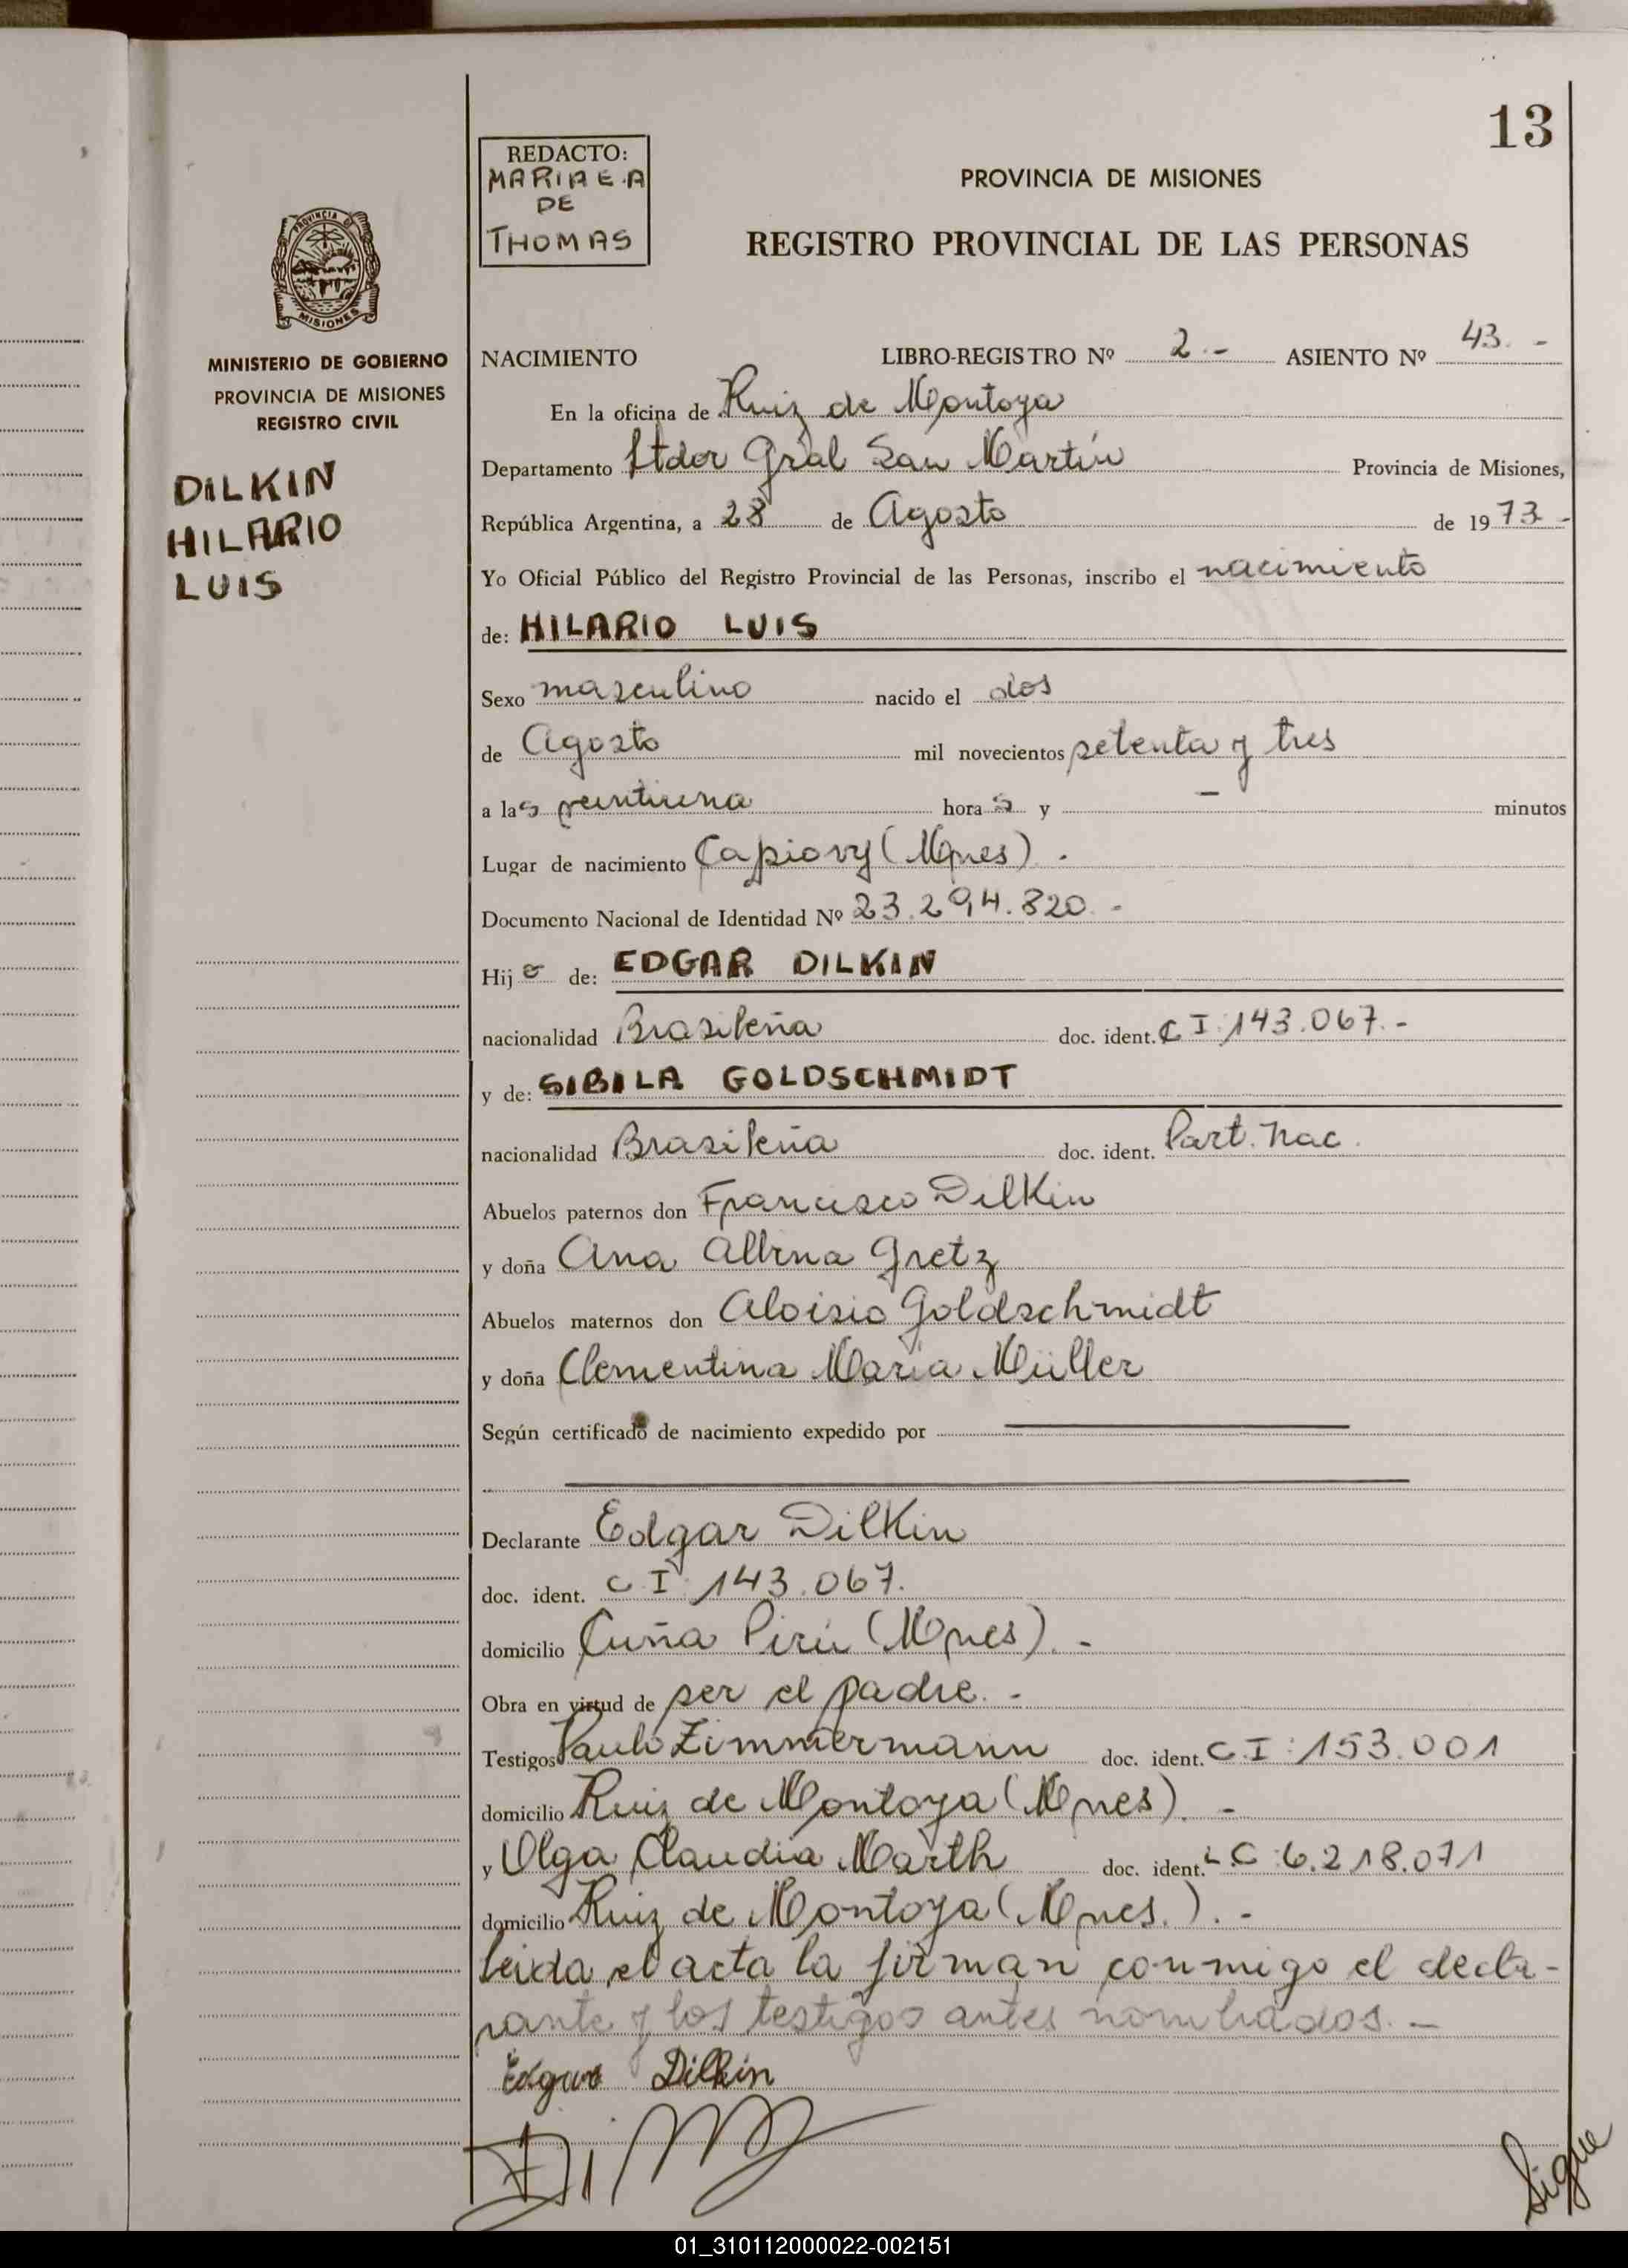 13
REDACTO:
MARIA E.A
DE
THOMAS
PROVINCIA DE MISIONES
REGISTRO PROVINCIAL DE LAS PERSONAS
PROVINCIA DE
MISIONES
MINISTERIO DE GOBIERNO
PROVINCIA DE MISIONES
REGISTRO CIVIL
DILKIN
HILARIO
LUIS
NACIMIENTO LIBRO-REGISTRO Nº 2.- ASIENTO Nº 43.-
En la oficina de Ruiz de Montoya
Departamento Ltdor Gral San Martín Provincia de Misiones,
República Argentina, a 28 de Agosto de 1973-
Yo Oficial Público del Registro Provincial de las Personas, inscribo el nacimiento
de: HILARIO LUIS
Sexo masculino nacido el dos
de Agosto mil novecientos setenta y tres
a las veintiuna horas y - minutos
Lugar de nacimiento Capiovy (Mnes).
Documento Nacional de Identidad Nº 23.294.820.-
Hijo de: EDGAR DILKIN
nacionalidad Brasileña doc. ident. C I: 143.067.-
y de: SIBILA GOLDSCHMIDT
nacionalidad Brasileña doc. ident. Part. Nac.
Abuelos paternos don Francisco Dilkin
y doña Ana Albina Gretz
Abuelos maternos don Aloisio Goldschmidt
y doña Clementina Maria Müller
Según certificado de nacimiento expedido por
Declarante Edgar Dilkin
doc. ident. C I: 143.067.
domicilio Cuña Pirú (Mnes).-
Obra en virtud de ser el padre.-
Testigos Paulo Zimmermann doc. ident. C I: 153.001
domicilio Ruiz de Montoya (Mnes).-
y Olga Claudia Marth doc. ident. L C: 6.218.071
domicilio Ruiz de Montoya (Mnes.).-
Leida el acta la firman conmigo el decla-
rante y los testigos antes nombrados.-
Edgar Dilkin
Sigue
01_310112000022-002151